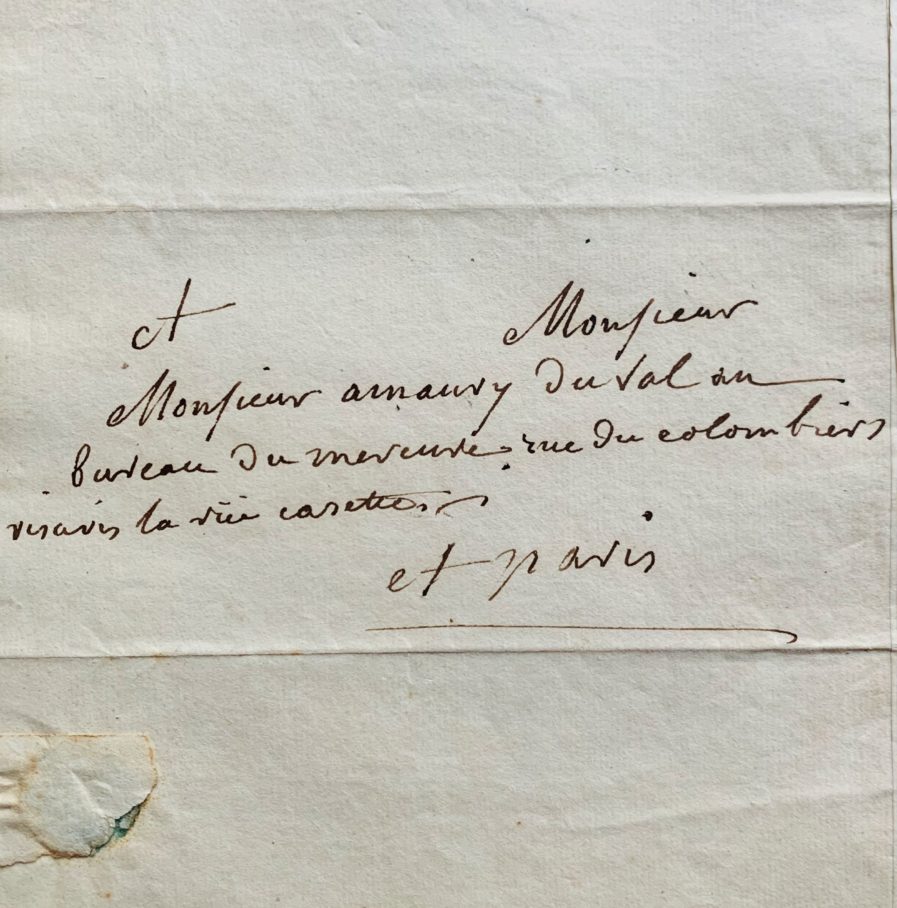 A Monsieur
Monsieur amaury Duval au
bureau Du mercure rue Du colombiers
visavis la rüe casettes
et paris